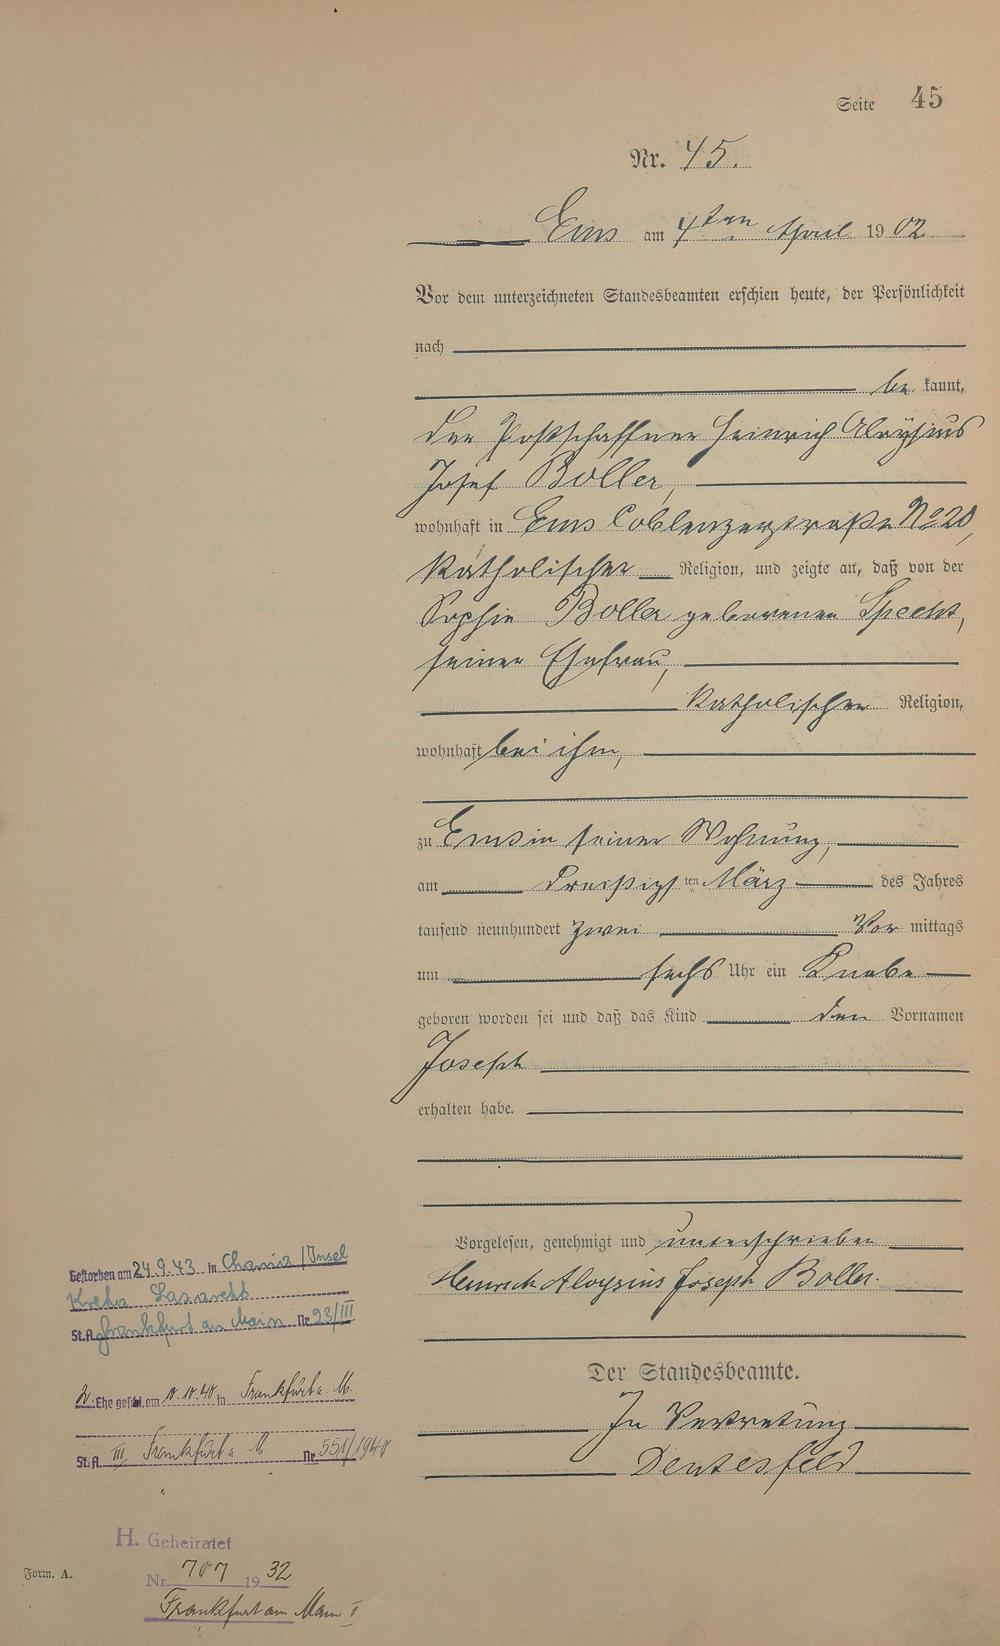 Seite 45
Nr. 45.
Ems am 4ten April 1902
Vor dem unterzeichneten Standesbeamten erschien heute, der Persönlichkeit
nach
be kannt,
der Postschaffner Heinrich Aloysius
Josef Boller,
wohnhaft in Ems Coblenzerstraße No 20,
katholischer Religion, und zeigte an, daß von der
Sophie Boller geborenen Specht,
seiner Ehefrau,
katholischer Religion,
wohnhaft bei ihm,
zu Ems in seiner Wohnung,
am dreißigsten März des Jahres
tausend neunhundert zwei Vor mittags
um sechs Uhr ein Knabe
geboren worden sei und daß das Kind den Vornamen
Joseph
erhalten habe.
Vorgelesen, genehmigt und unterschrieben
Heinrich Aloysius Joseph Boller.
Der Standesbeamte.
In Vertretung
Gestorben am 24.9.43 in Chania/Insel
Kreta Lazarett
St.A. Frankfurt am Main Nr. 23/III
2. Ehe geschl. am in Frankfurt a. M.
St.A. III Frankfurt a. M. Nr. 551/1940
H. Geheiratet
Nr. 707 1932
Frankfurt am Main I
Form. A.